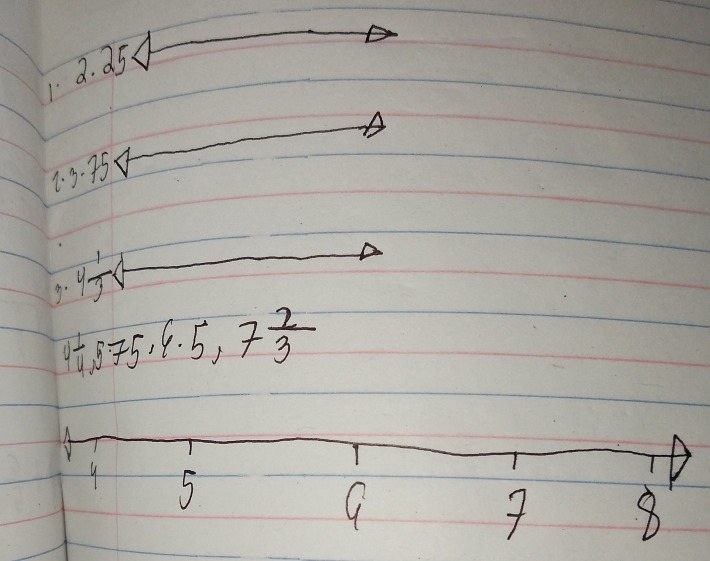 1. 2.25
2. 3.75
3. 4 1/3
4 1/4, 5 75, 6.5, 7 2/3
4 5 6 7 8